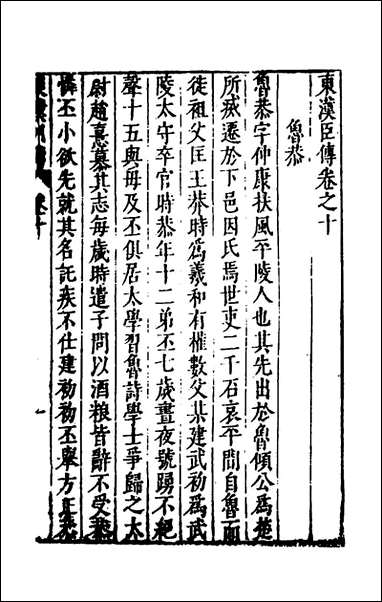 東漢臣傳卷之十
魯恭
魯恭字仲康扶風平陵人也其先出於魯傾公爲楚
所滅遷於下邑因氏焉世吏二千石哀平間自魯而
徙祖父匡王莽時爲羲和有權數父某建武初爲武
陵太守卒官時恭年十二弟丕七歲晝夜號踴不絕
聲十五與母及丕俱居太學習魯詩學士爭歸之太
尉趙憙慕其志每歲時遣子問以酒粮皆辭不受恭
憐丕小欲先就其名託疾不仕建初初丕舉方正恭
卷十
一